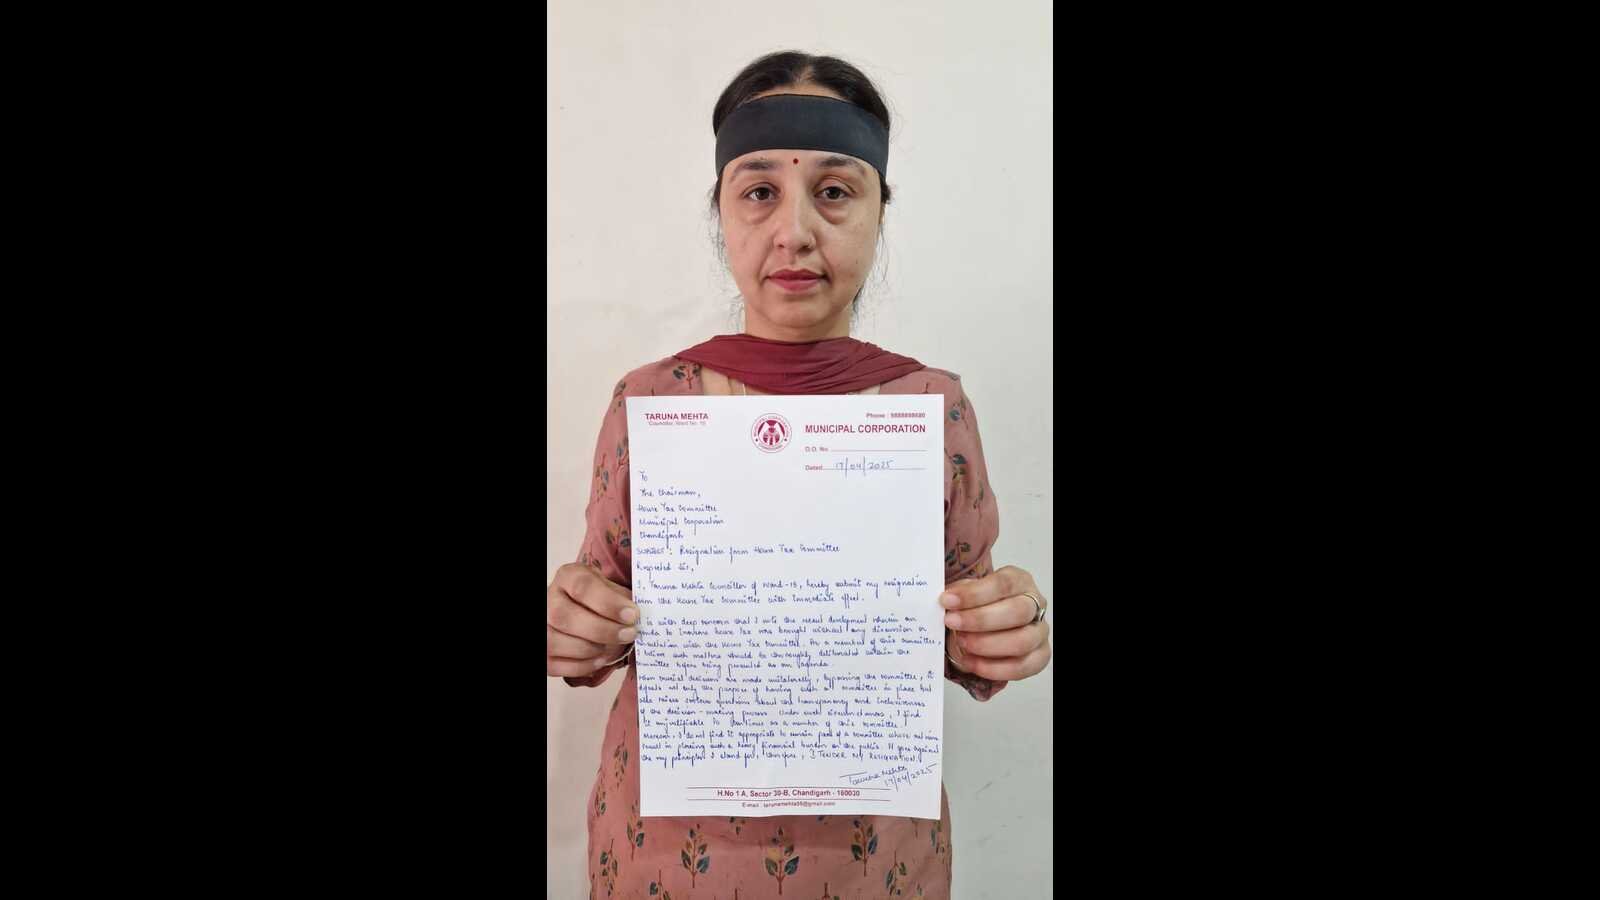 TARUNA MEHTA
Councillor, Ward No. 18
Phone : 9888898680
MUNICIPAL CORPORATION
D.O. No.
Dated 17/04/2025
To
The Chairman,
House Tax Committee
Municipal Corporation
Chandigarh
SUBJECT : Resignation from House Tax Committee
Respected Sir,
I, Taruna Mehta Councillor of Ward-18, hereby submit my resignation
from the House Tax Committee with immediate effect.
It is with deep concern that I note the recent development wherein an
agenda to increase house tax was brought without any discussion or
consultation with the House Tax Committee. As a member of this committee,
I believe such matters should be thoroughly deliberated within the
committee before being presented as an agenda.
When crucial decisions are made unilaterally, bypassing the committee, it
defeats not only the purpose of having such a committee in place but
also raises serious questions about the transparency and inclusiveness
of the decision-making process. Under such circumstances, I find
it unjustifiable to continue as a member of this committee.
Moreover, I do not find it appropriate to remain part of a committee whose actions
result in placing such a heavy financial burden on the public. It goes against
the my principles I stand for, therefore, I TENDER MY RESIGNATION.
Taruna Mehta
17/04/2025
H.No 1 A, Sector 30-B, Chandigarh - 160030
E-mail : tarunamehta86@gmail.com